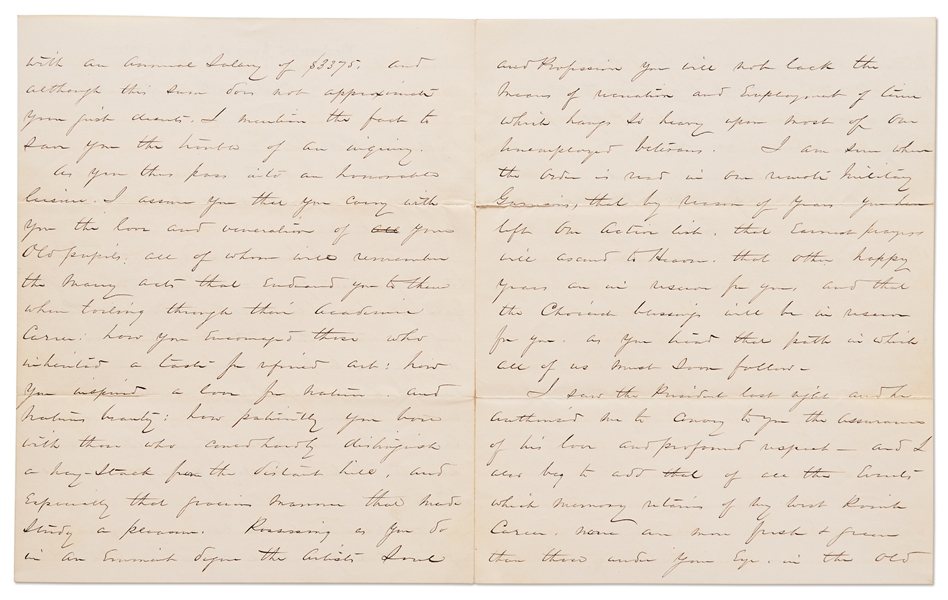 with an annual Salary of $3375. and
although this sum does not approximate
your just deserts. I mention the fact to
save you the trouble of an inquiry.
As you thus pass into an honorable
leisure. I assure you that you carry with
you the love and veneration of all your
Old pupils. all of whom will remember
the Many acts that Endeared you to them
when toiling through their Academic
Career: how you encouraged those who
inherited a taste for refined art: how
you inspired a love for Nature. and
Natures beauty: how patiently you bore
with those who could hardly distinguish
a hay-Stack from the distant hill, and
Especially that gracious Manner that made
Study a pleasure. Possessing as you do
in an Eminent degree the Artists Soul
and Profession you will not lack the
Means of recreation and Employment of time
which hangs so heavy upon most of our
Unemployed veterans. I am sure when
the order is read in our remote Military
Garrisons, that by reason of Years you have
left our Active list. that Earnest prayers
will ascend to Heaven. that other happy
years are in reserve for you. and that
the Choicest blessings will be in reserve
for you. as you tread that path in which
all of us must Soon follow-
I saw the President last night and he
authorised me to convey to you the assurance
of his love and profound respect - and I
also beg to add that of all the Events
which memory retains of my West Point
Career. none are more fresh & green
than those under your Eye. in the Old